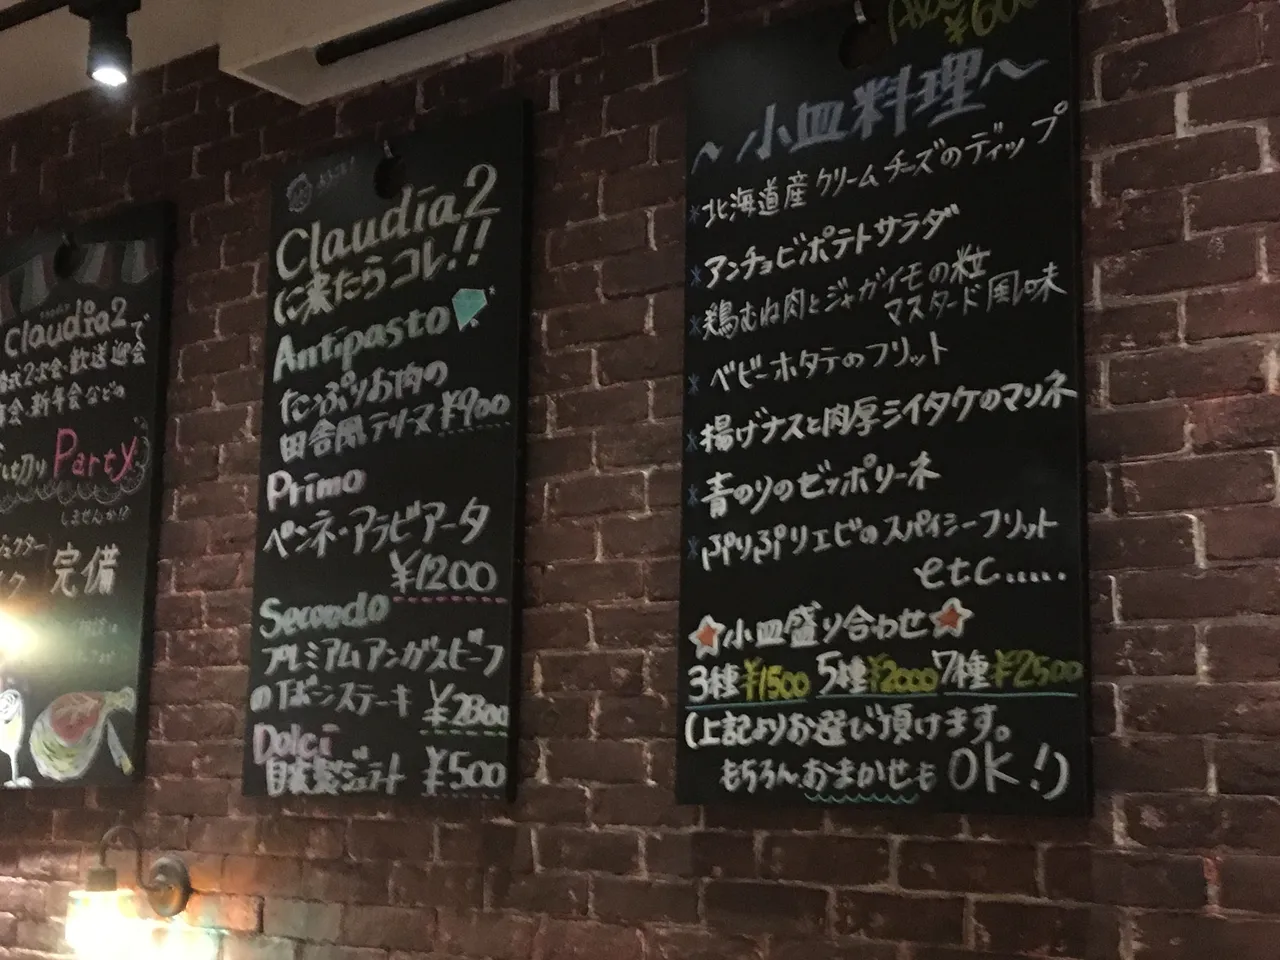 Claudia2で
婚式2次会・歓送迎会
年会、新年会などの
Party
しませんか!?
完備
Claudia2
に来たらコレ!!
Antipasto
たっぷりお肉の
田舎風テリーヌ ¥900
Primo
ペンネ・アラビアータ
¥1200
Secondo
プレミアムアンガスビーフ
のTボーンステーキ ¥2800
Dolci
自家製ジェラート ¥500
¥600
～小皿料理～
*北海道産クリームチーズのディップ
*アンチョビポテトサラダ
*鶏むね肉とジャガイモの粒
マスタード風味
*ベビーホタテのフリット
*揚げナスと肉厚シイタケのマリネ
*青のりのゼッポリーネ
*ぷりぷりエビのスパイシーフリット
etc.....
☆小皿盛り合わせ☆
3種¥1500 5種¥2000 7種¥2500
(上記よりお選び頂けます。
もちろん、おまかせも OK!)